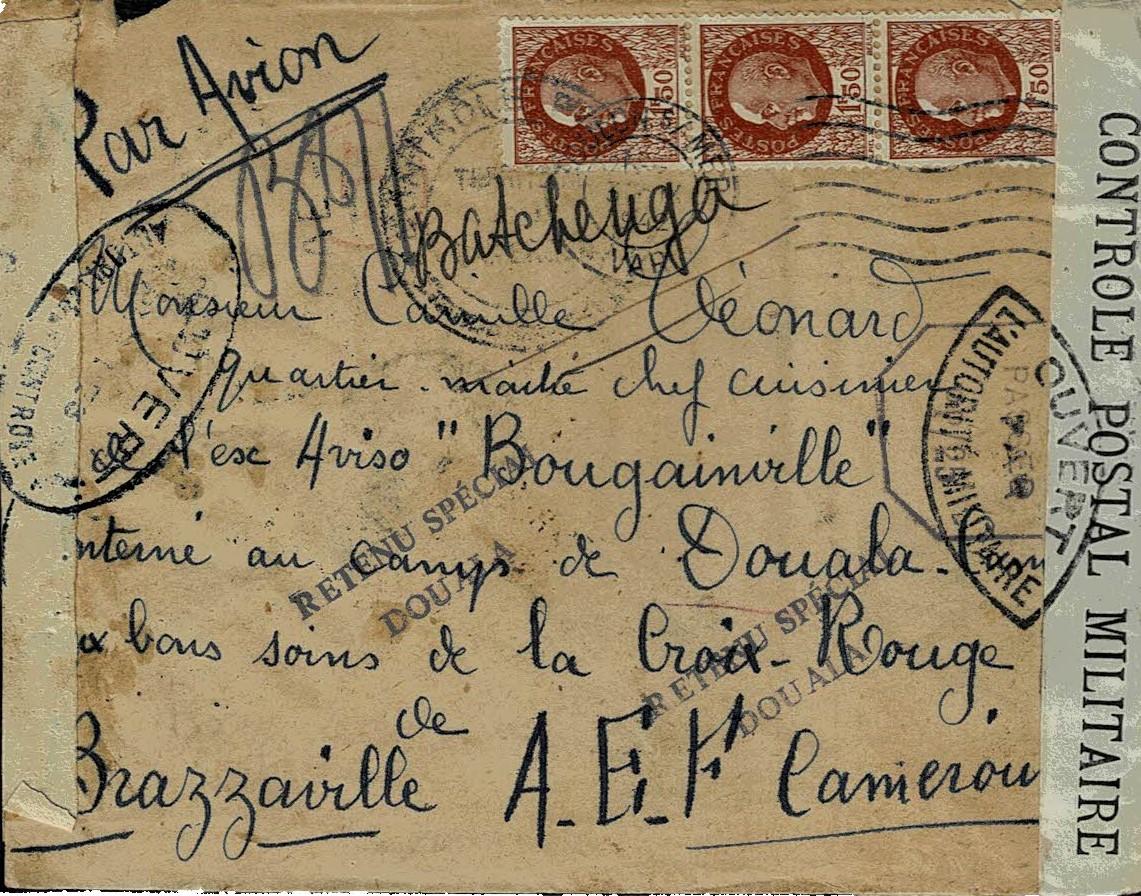 Par Avion
POSTES FRANÇAISES 1F50
POSTES FRANÇAISES 1F50
POSTES FRANÇAISES 1F50
Batchenga
Monsieur Camille Léonard
quartier-maitre chef cuisinier
de l'ex Aviso "Bougainville"
interné au Camps de Douala.
aux bons soins de la Croix-Rouge
de
Brazzaville A.E.F Cameroun
RETENU SPÉCIAL
DOUALA
RETENU SPÉCIAL
DOUALA
OUVERT
CONTROLE
OUVERT
PAR
L'AUTORITÉ MILITAIRE
CONTROLE POSTAL MILITAIRE